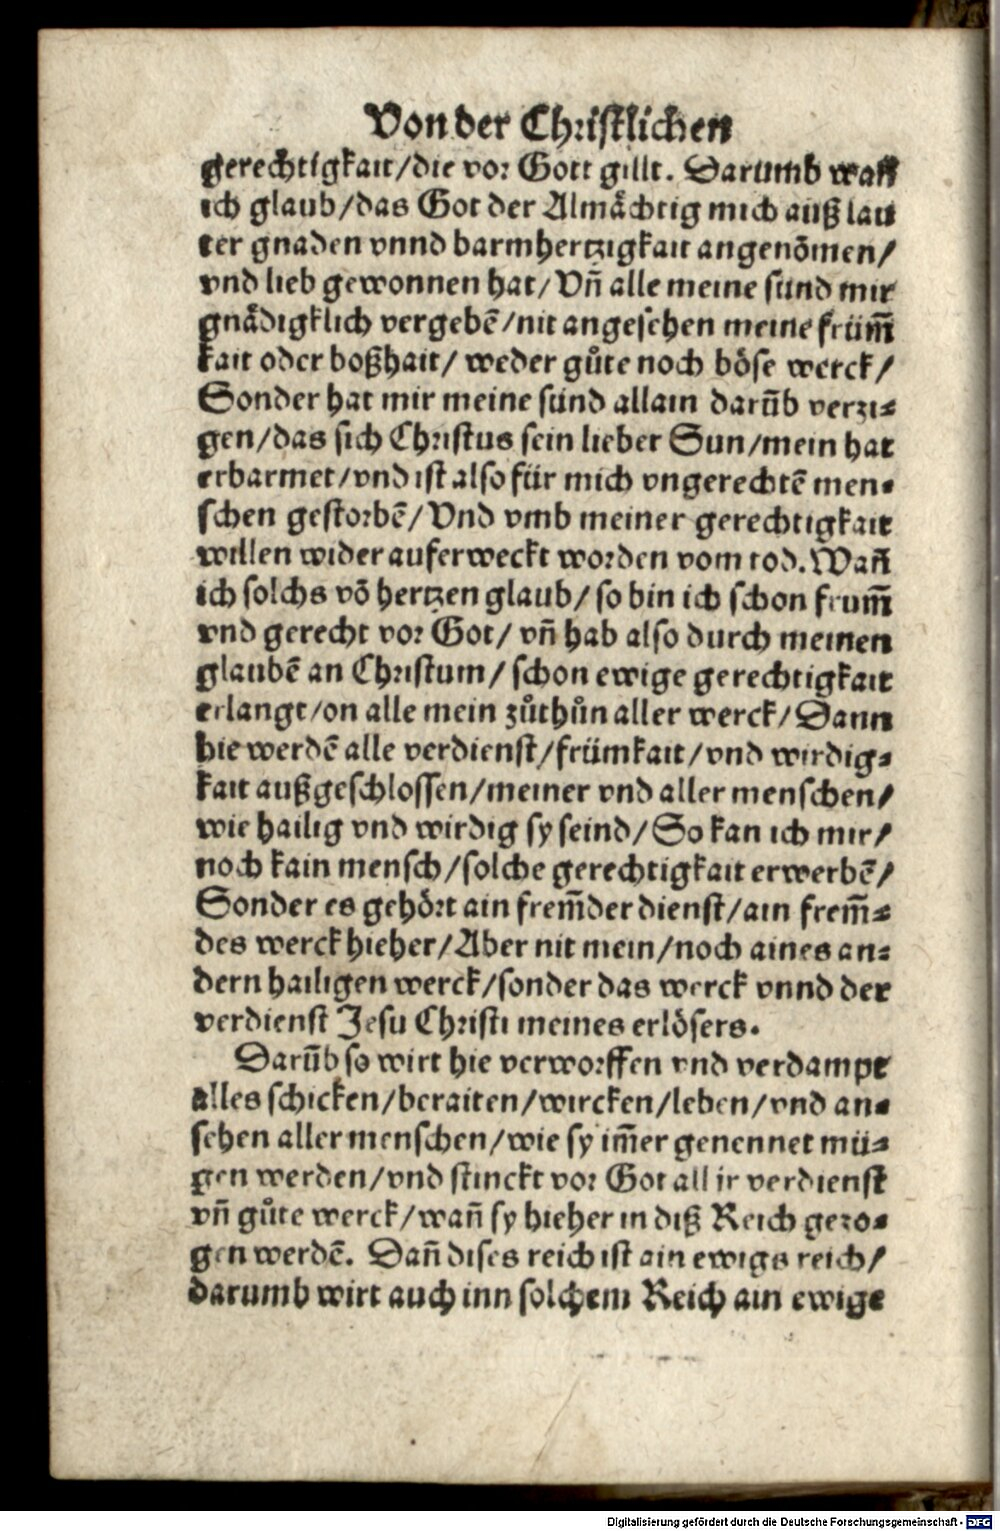 Von der Christlichen
gerechtigkait/die vor Gott gillt. Darumb wañ
ich glaub/das Got der Almächtig mich auß lau
ter gnaden vnnd barmhertzigkait angenõmen/
vnd lieb gewonnen hat/Vñ alle meine sünd mir
gnädigklich vergebẽ/nit angesehen meine früm̃
kait oder boßhait/ weder gůte noch böse werck/
Sonder hat mir meine sünd allain darũb verzi⸗
gen/das sich Christus sein lieber Sun/mein hat
erbarmet/vnd ist also für mich vngerechtẽ men⸗
schen gestorbẽ/Vnd vmb meiner gerechtigkait
willen wider auferweckt worden vom tod. Wañ
ich solchs võ hertzen glaub/ so bin ich schon frum̃
vnd gerecht vor Got/ vñ hab also durch meinen
glaubẽ an Christum/ schon ewige gerechtigkait
erlangt/on alle mein zůthůn aller werck/Dann
hie werdẽ alle verdienst/frümkait/vnd wirdig⸗
kait außgeschlossen/meiner vnd aller menschen/
wie hailig vnd wirdig sy seind/So kan ich mir/
noch kain mensch/solche gerechtigkait erwerbẽ/
Sonder es gehört ain frem̃der dienst/ain frem̃⸗
des werck hieher/Aber nit mein/noch aines an⸗
dern hailigen werck/sonder das werck vnnd der
verdienst Jesu Christi meines erlösers.
Darũb so wirt hie verworffen vnd verdampt
alles schicken/beraiten/wircken/leben/vnd an⸗
sehen aller menschen/wie sy im̃er genennet mü⸗
gen werden/vnd stinckt vor Got all ir verdienst
vñ gůte werck/wañ sy hieher in diß Reich gezo⸗
gen werdẽ. Dañ dises reich ist ain ewigs reich/
darumb wirt auch inn solchem Reich ain ewige
Digitalisierung gefördert durch die Deutsche Forschungsgemeinschaft - DFG